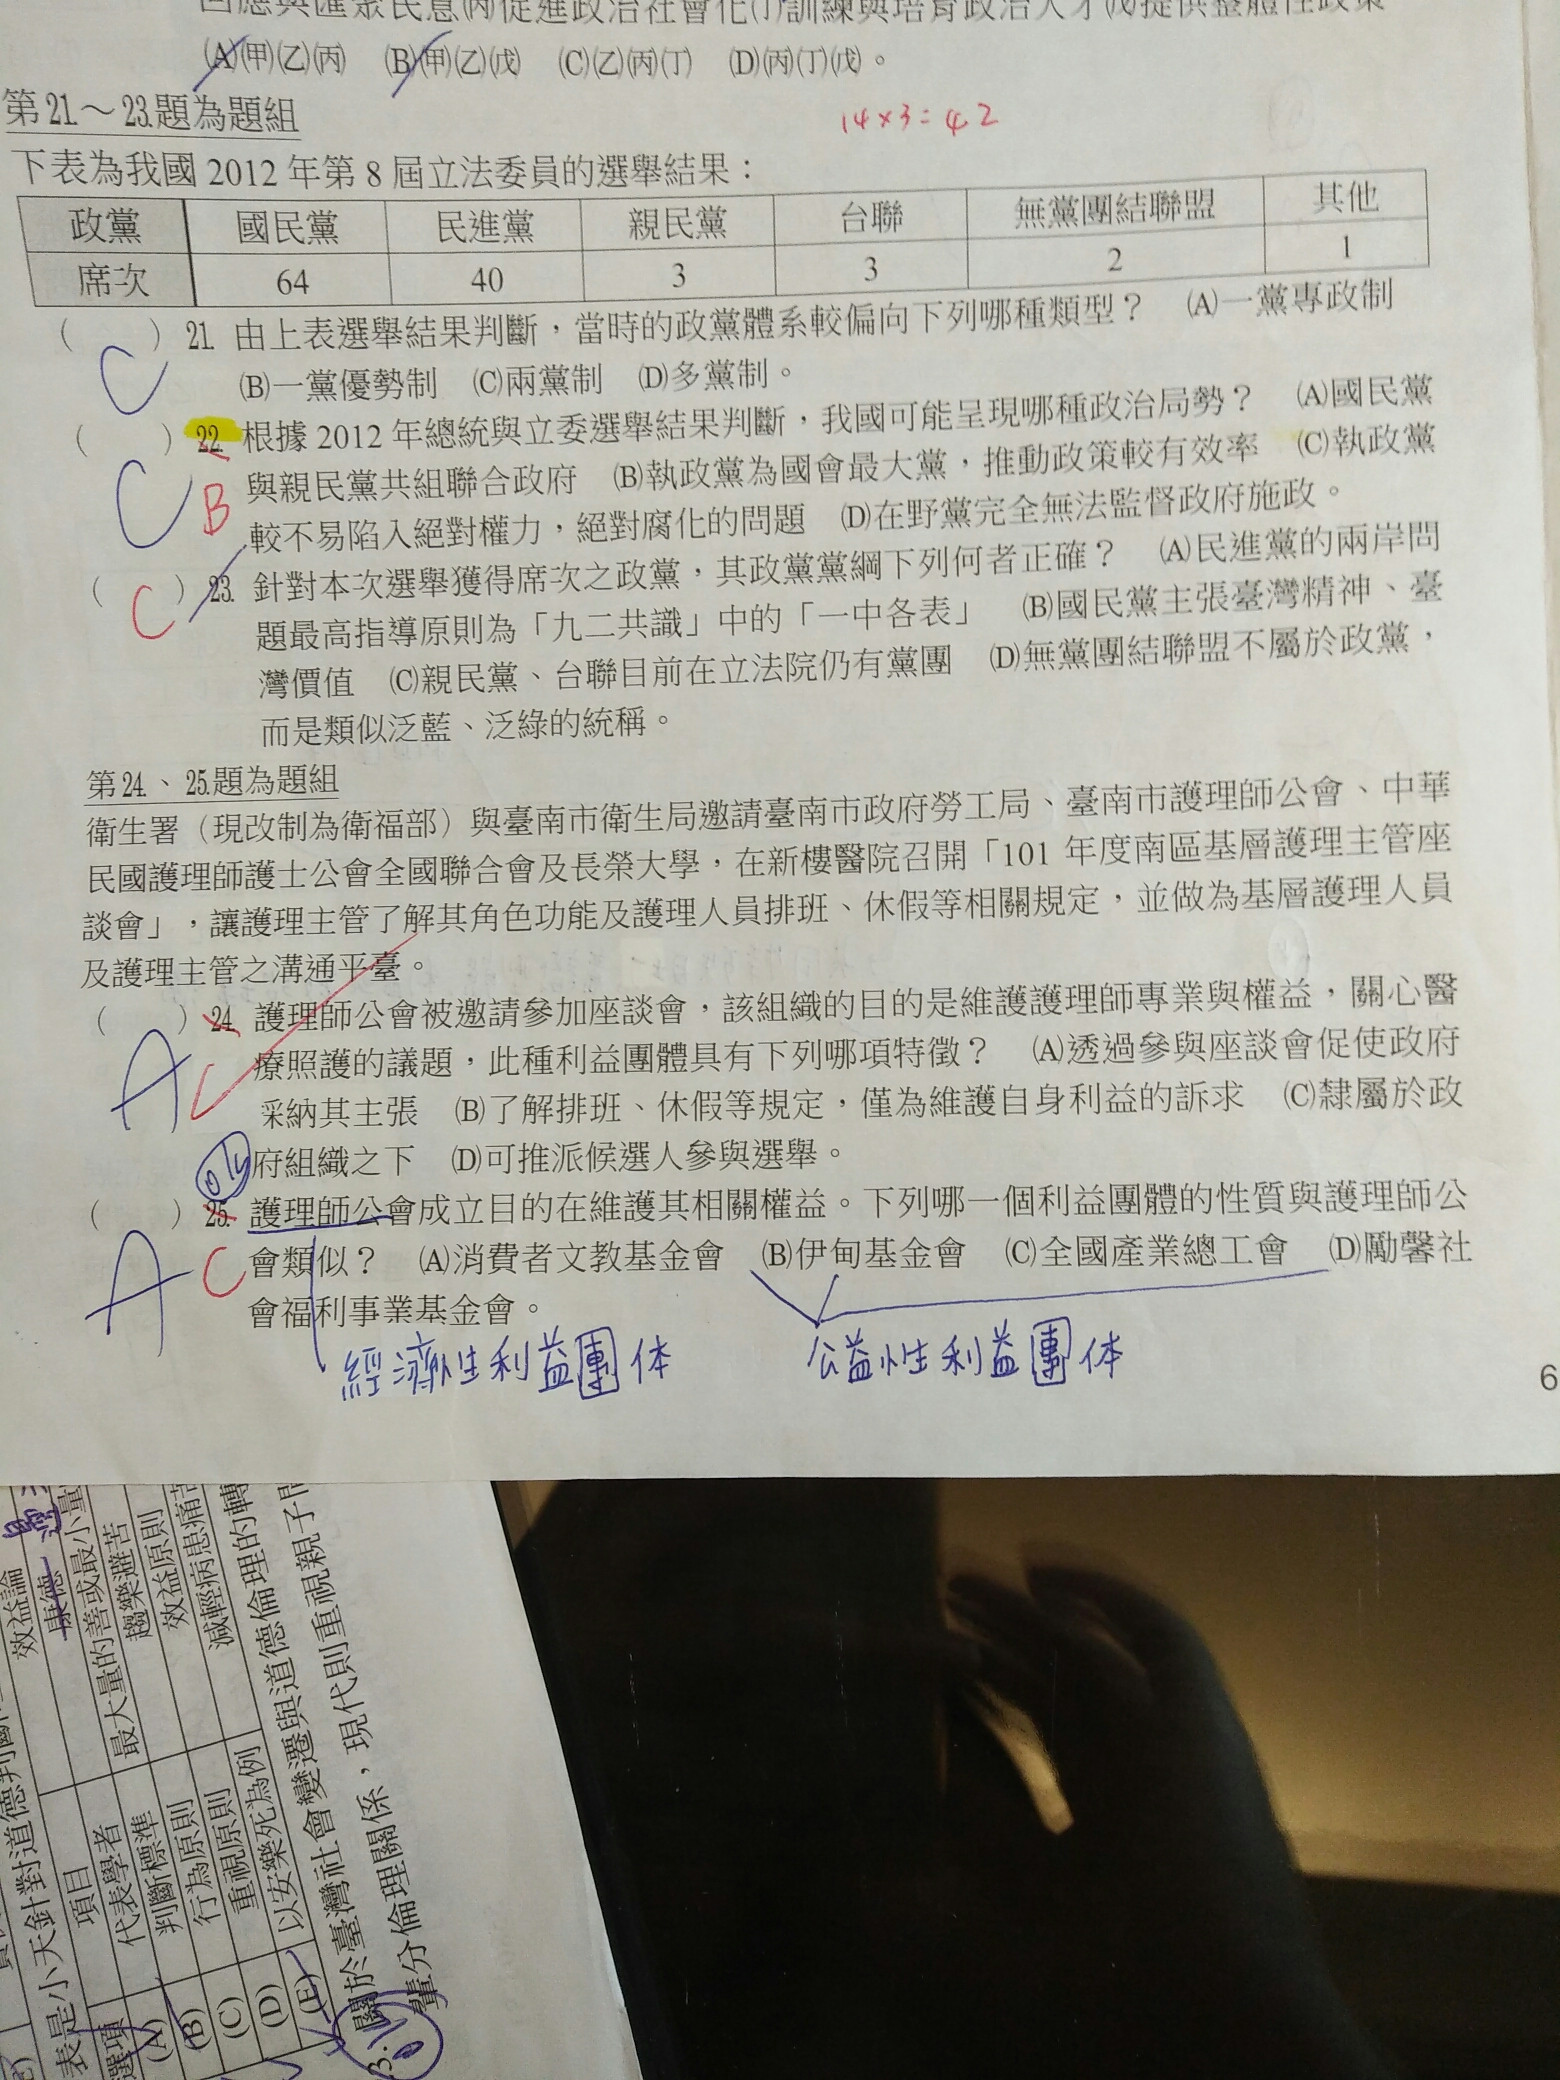 回應與匯眾民意(丙)促進政治社會化(丁)訓練與培育政治人才(戊)提供整體性政策
(A)(甲)(乙)(丙) (B)(甲)(乙)(戊) (C)(乙)(丙)(丁) (D)(丙)(丁)(戊)。
第21.～23.題為題組
14×3=42
下表為我國 2012 年第 8 屆立法委員的選舉結果：
政黨 國民黨 民進黨 親民黨 台聯 無黨團結聯盟 其他
席次 64 40 3 3 2 1
( ) 21. 由上表選舉結果判斷，當時的政黨體系較偏向下列哪種類型？ (A)一黨專政制
C
(B)一黨優勢制 (C)兩黨制 (D)多黨制。
( ) 22. 根據 2012 年總統與立委選舉結果判斷，我國可能呈現哪種政治局勢？ (A)國民黨
C B
與親民黨共組聯合政府 (B)執政黨為國會最大黨，推動政策較有效率 (C)執政黨
較不易陷入絕對權力，絕對腐化的問題 (D)在野黨完全無法監督政府施政。
( C ) 23. 針對本次選舉獲得席次之政黨，其政黨黨綱下列何者正確？ (A)民進黨的兩岸問
題最高指導原則為「九二共識」中的「一中各表」 (B)國民黨主張臺灣精神、臺
灣價值 (C)親民黨、台聯目前在立法院仍有黨團 (D)無黨團結聯盟不屬於政黨，
而是類似泛藍、泛綠的統稱。
第24.、25.題為題組
衛生署（現改制為衛福部）與臺南市衛生局邀請臺南市政府勞工局、臺南市護理師公會、中華
民國護理師護士公會全國聯合會及長榮大學，在新樓醫院召開「101 年度南區基層護理主管座
談會」，讓護理主管了解其角色功能及護理人員排班、休假等相關規定，並做為基層護理人員
及護理主管之溝通平臺。
( ) 24. 護理師公會被邀請參加座談會，該組織的目的是維護護理師專業與權益，關心醫
A C
療照護的議題，此種利益團體具有下列哪項特徵？ (A)透過參與座談會促使政府
采納其主張 (B)了解排班、休假等規定，僅為維護自身利益的訴求 (C)隸屬於政
府組織之下 (D)可推派候選人參與選舉。
( ) 25. 護理師公會成立目的在維護其相關權益。下列哪一個利益團體的性質與護理師公
A C
會類似？ (A)消費者文教基金會 (B)伊甸基金會 (C)全國產業總工會 (D)勵馨社
會福利事業基金會。
經濟性利益團体 公益性利益團体
6
表是小天針對道德判斷
選項 項目 效益論
(A) 代表學者 康德
(B) 判斷標準 最大量的善或最小量
(C) 行為原則 趨樂避苦
(D) 重視原則 效益原則
(E) 以安樂死為例 減輕病患痛苦
3. 關於臺灣社會變遷與道德倫理的轉
輩分倫理關係，現代則重視親子間